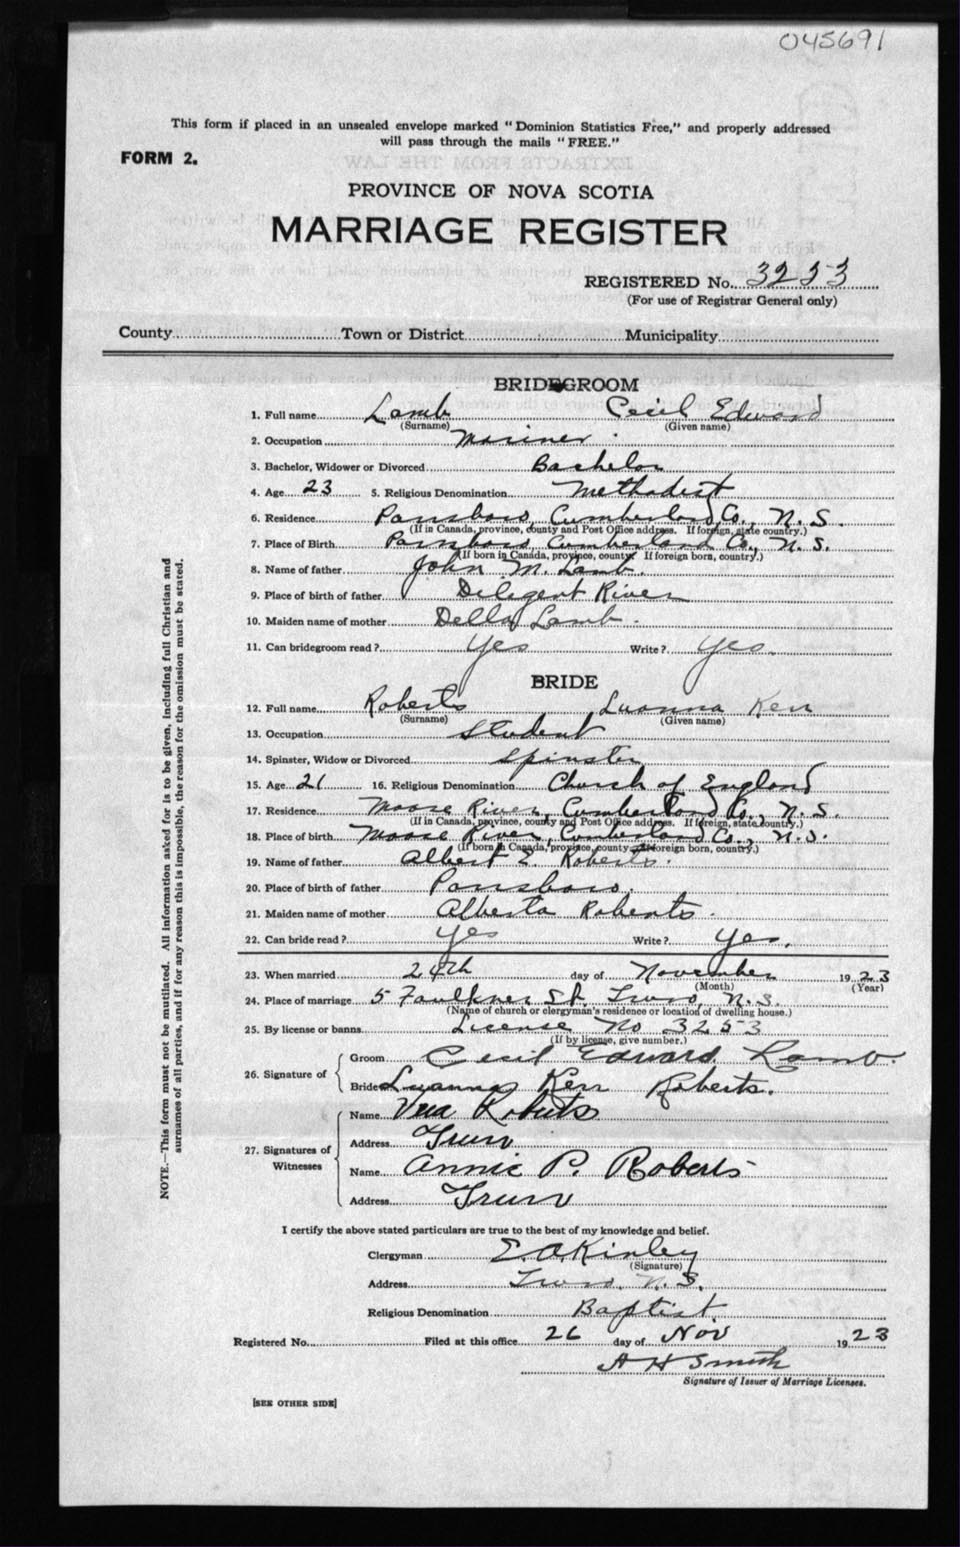 045691
This form if placed in an unsealed envelope marked "Dominion Statistics Free," and properly addressed
will pass through the mails "FREE."
FORM 2.
PROVINCE OF NOVA SCOTIA
MARRIAGE REGISTER
REGISTERED No. 3253
(For use of Registrar General only)
County Town or District Municipality
BRIDEGROOM
1. Full name Lamb Cecil Edward
(Surname) (Given name)
2. Occupation Mariner
3. Bachelor, Widower or Divorced Bachelor
4. Age 23 5. Religious Denomination Methodist
6. Residence Parrsboro, Cumberland Co., N.S.
(If in Canada, province, county and Post Office address. If foreign, state country.)
7. Place of Birth Parrsboro Cumberland Co., N.S.
(If born in Canada, province, county. If foreign born, country.)
8. Name of father John M. Lamb.
9. Place of birth of father Diligent River
10. Maiden name of mother Della Lamb.
11. Can bridegroom read? Yes Write? Yes.
BRIDE
12. Full name Roberts Luanna Kerr
(Surname) (Given name)
13. Occupation Student
14. Spinster, Widow or Divorced Spinster
15. Age 21 16. Religious Denomination Church of England
17. Residence Moose River, Cumberland Co., N.S.
(If in Canada, province, county and Post Office address. If foreign, state country.)
18. Place of birth Moose River, Cumberland Co., N.S.
(If born in Canada, province, county. If foreign born, country.)
19. Name of father Albert E. Roberts.
20. Place of birth of father Parrsboro.
21. Maiden name of mother Alberta Roberts.
22. Can bride read? Yes Write? Yes.
23. When married 24th day of November 1923
(Month) (Year)
24. Place of marriage 5 Faulkner St. Truro, N.S.
(Name of church or clergyman's residence or location of dwelling house.)
25. By license or banns License No 3253
(If by license, give number.)
26. Signature of Groom Cecil Edward Lamb.
Bride Luanna Kerr Roberts.
27. Signatures of Witnesses Name Vera Roberts
Address Truro
Name Annie P. Roberts
Address Truro
I certify the above stated particulars are true to the best of my knowledge and belief.
Clergyman E. A. Kinley
(Signature)
Address Truro, N.S.
Religious Denomination Baptist.
Registered No. Filed at this office 26 day of Nov 1923
A H Smith
Signature of Issuer of Marriage Licenses.
[SEE OTHER SIDE]
NOTE.—This form must not be mutilated. All information asked for is to be given, including full Christian and
surnames of all parties, and if for any reason this is impossible, the reason for the omission must be stated.